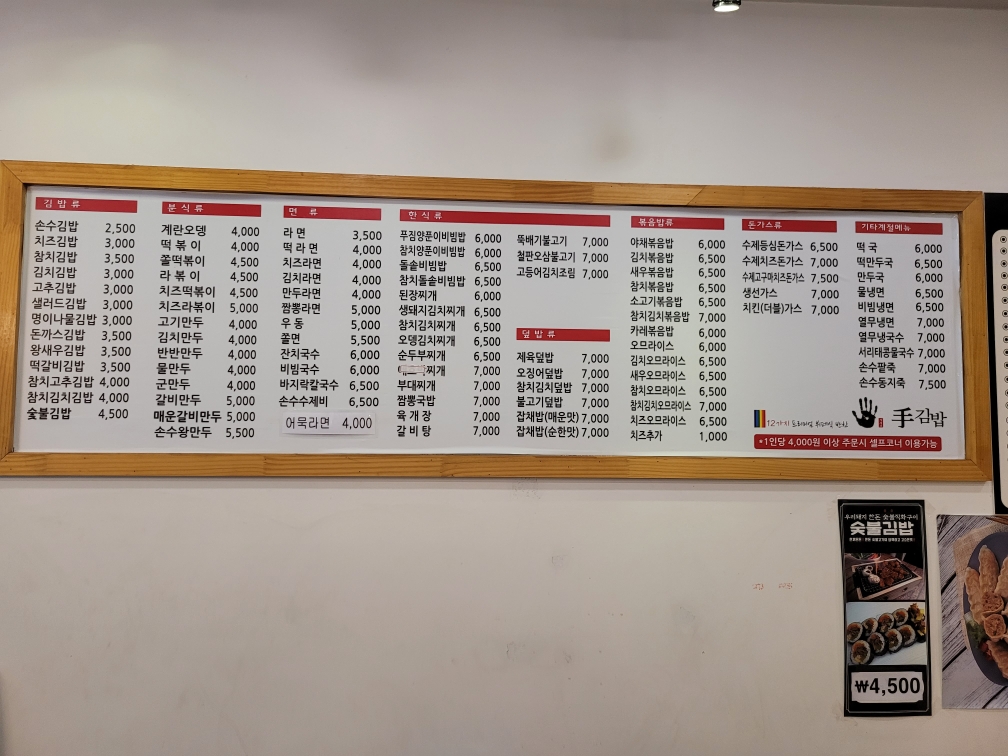 김밥류
손수김밥 2,500
치즈김밥 3,000
참치김밥 3,500
김치김밥 3,000
고추김밥 3,000
샐러드김밥 3,000
명이나물김밥 3,000
돈까스김밥 3,500
왕새우김밥 3,500
떡갈비김밥 3,500
참치고추김밥 4,000
참치김치김밥 4,000
숯불김밥 4,500
분식류
계란오뎅 4,000
떡볶이 4,000
쫄떡볶이 4,500
라볶이 4,500
치즈떡볶이 4,500
치즈라볶이 5,000
고기만두 4,000
김치만두 4,000
반반만두 4,000
물만두 4,000
군만두 4,000
갈비만두 5,000
매운갈비만두 5,000
손수왕만두 5,500
면류
라면 3,500
떡라면 4,000
치즈라면 4,000
김치라면 4,000
만두라면 4,000
짬뽕라면 5,000
우동 5,000
쫄면 5,500
잔치국수 6,000
비빔국수 6,000
바지락칼국수 6,500
손수수제비 6,500
어묵라면 4,000
한식류
푸짐양푼이비빔밥 6,000
참치양푼이비빔밥 6,500
돌솥비빔밥 6,500
참치돌솥비빔밥 6,500
된장찌개 6,000
생돼지김치찌개 6,500
참치김치찌개 6,500
오뎅김치찌개 6,500
순두부찌개 6,500
찌개 7,000
부대찌개 7,000
짬뽕국밥 7,000
육개장 7,000
갈비탕 7,000
뚝배기불고기 7,000
철판오삼불고기 7,000
고등어김치조림 7,000
덮밥류
제육덮밥 7,000
오징어덮밥 7,000
참치김치덮밥 7,000
불고기덮밥 7,000
잡채밥(매운맛) 7,000
잡채밥(순한맛) 7,000
볶음밥류
야채볶음밥 6,000
김치볶음밥 6,500
새우볶음밥 6,500
참치볶음밥 6,500
소고기볶음밥 6,500
참치김치볶음밥 7,000
카레볶음밥 6,000
오므라이스 6,000
김치오므라이스 6,500
새우오므라이스 6,500
참치오므라이스 6,500
참치김치오므라이스 7,000
치즈오므라이스 6,500
치즈추가 1,000
돈가스류
수제등심돈가스 6,500
수제치즈돈가스 7,000
수제고구마치즈돈가스 7,500
생선가스 7,000
치킨(더블)가스 7,000
기타계절메뉴
떡국 6,000
떡만두국 6,500
만두국 6,000
물냉면 6,500
비빔냉면 6,500
열무냉면 7,000
열무냉국수 7,000
서리태콩물국수 7,000
손수팥죽 7,000
손수동지죽 7,500
手김밥
*1인당 4,000원 이상 주문시 셀프코너 이용가능
숯불김밥
₩4,500